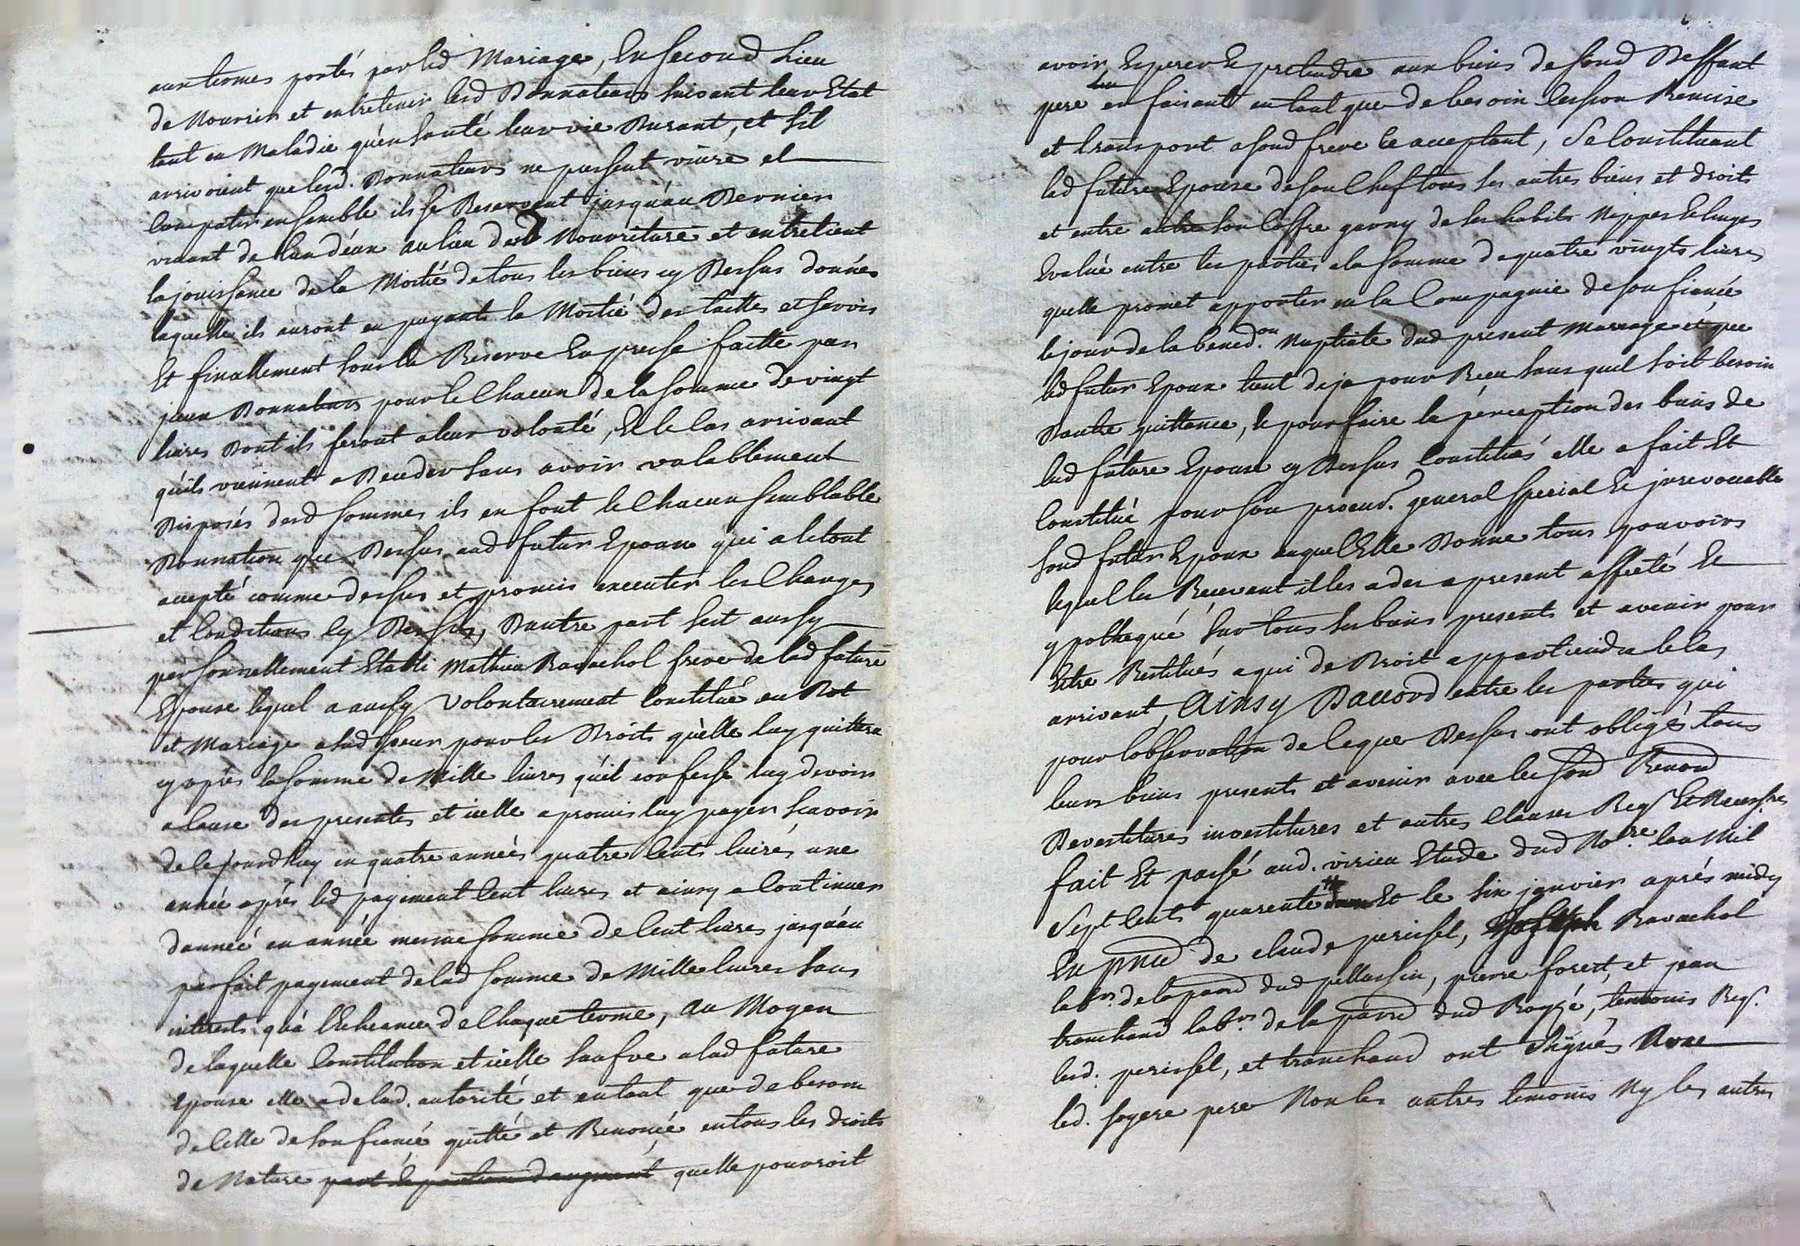 aux termes portés par led Mariage, En second Lieu
de Nourrir et entretenir lesd Donnateurs suivant leur Etat
tant en Maladie qu'en santé leur vie Durant, et sil
arrivoient que lesd. Donnateurs ne pussent vivre et
Compatir ensemble ils se Reservent jusqu'au Dernier
vivant de l'un d'eux au lieu de Nourriture et entretient
la jouissance de la Moitié de tous les biens cy Dessus donnés
laquelle ils auront en payants la Moitié des tailles et servis
Et finallement sous la Reserve Expresse faitte par
Donnateurs pour le Chacun de la somme de vingt
livres Dont ils feront a leur volonté, Et le Cas arrivant
qu'ils viennent a Deceder sans avoir valablement
Disposés desd sommes ils en font le Chacun semblable
Donnation que Dessus aud futur Epoux qui a le tout
accepté comme dessus et promis executer les Charges
et Conditions Cy Dessus, Dautre part sest aussy
personnellement Etabli Mathieu Ravachol frere de lad future
Epouse lequel a aussy Volontairement Constitué en Dot
et Mariage a lad soeur pour les Droits qu'elle luy quittera
cy apres la somme de Mille livres qu'il confesse luy devoir
a Cause des presentes et icelle a promis luy payer scavoir
de ce jourdhuy en quatre années quatre Cents livres une
année après led payement Cent livres et ainsy a Continuer
dannée en année mesme somme de Cent livres jusqu'au
parfait payement de lad somme de Mille livres sans
interets qu'a l'Echeance de Chaque terme, Au Moyen
de laquelle Constitution et icelle sauve a lad future
epouse elle a de lad. autorité et entant que de besoin
de Celle de son fiancé quitté et Renoncé en tous les droits
de Nature part de portion d'augment quelle pourroit
avoir Esperer Et pretendre aux biens de sond Deffunt
pere en faisant en tant que de besoin Cession Remise
et transport a sond frere Ce acceptant, Se Constituant
lad future Epouse de son Chef tous ses autres biens et droits
et entre autre son Coffre garny de ses habits Nippes Et linges
Evalué entre les parties a la somme de quatre vingts livres
quelle promet apporter en la Compagnie de son fiancé
le jour de la bened.on Nuptiale dud present Mariage et que
led futur Epoux tient deja pour Recu sans quil soit besoin
Dautre quittance, Et pour faire la perception des biens de
lad future Epouse cy Dessus Constitués elle a fait Et
Constitué pour son procur.r general special Et jrrevocable
sond futur Epoux auquel Elle Donne tous pouvoirs
lequel les Recevant il les a des a present affecté Et
ypothequé sur tous ses biens presents et avenir pour
Etre Restitués a qui de Droit appartiendra le Cas
arrivant, Ainsy Daccord entre les parties qui
pour l'observation de Ce que Dessus ont obligés tous
leurs biens presents et avenir avec les sond Renond
Devestitures investitures et autres Clauses Req. Et Necess.res
fait Et passé aud. virieu Etude dud No.re l'an Mil
Sept Cents quarente Et le six janvier après midy
En pnce de claude perissel, Ravachol
lab.r de la parr dud pellussin, pierre forest, et jean
tranchand lab.r de la parr dud Roysé, temoins Req.
lesd. perissel, et tranchand ont Signés Avec
led. sogere pere Non les autres temoins Ny les autres